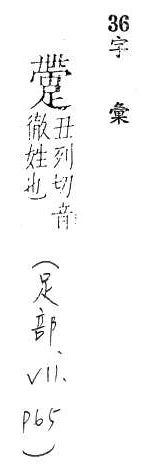 36 字彙
丑列切音
徹姓也
(足部、VII. P65)